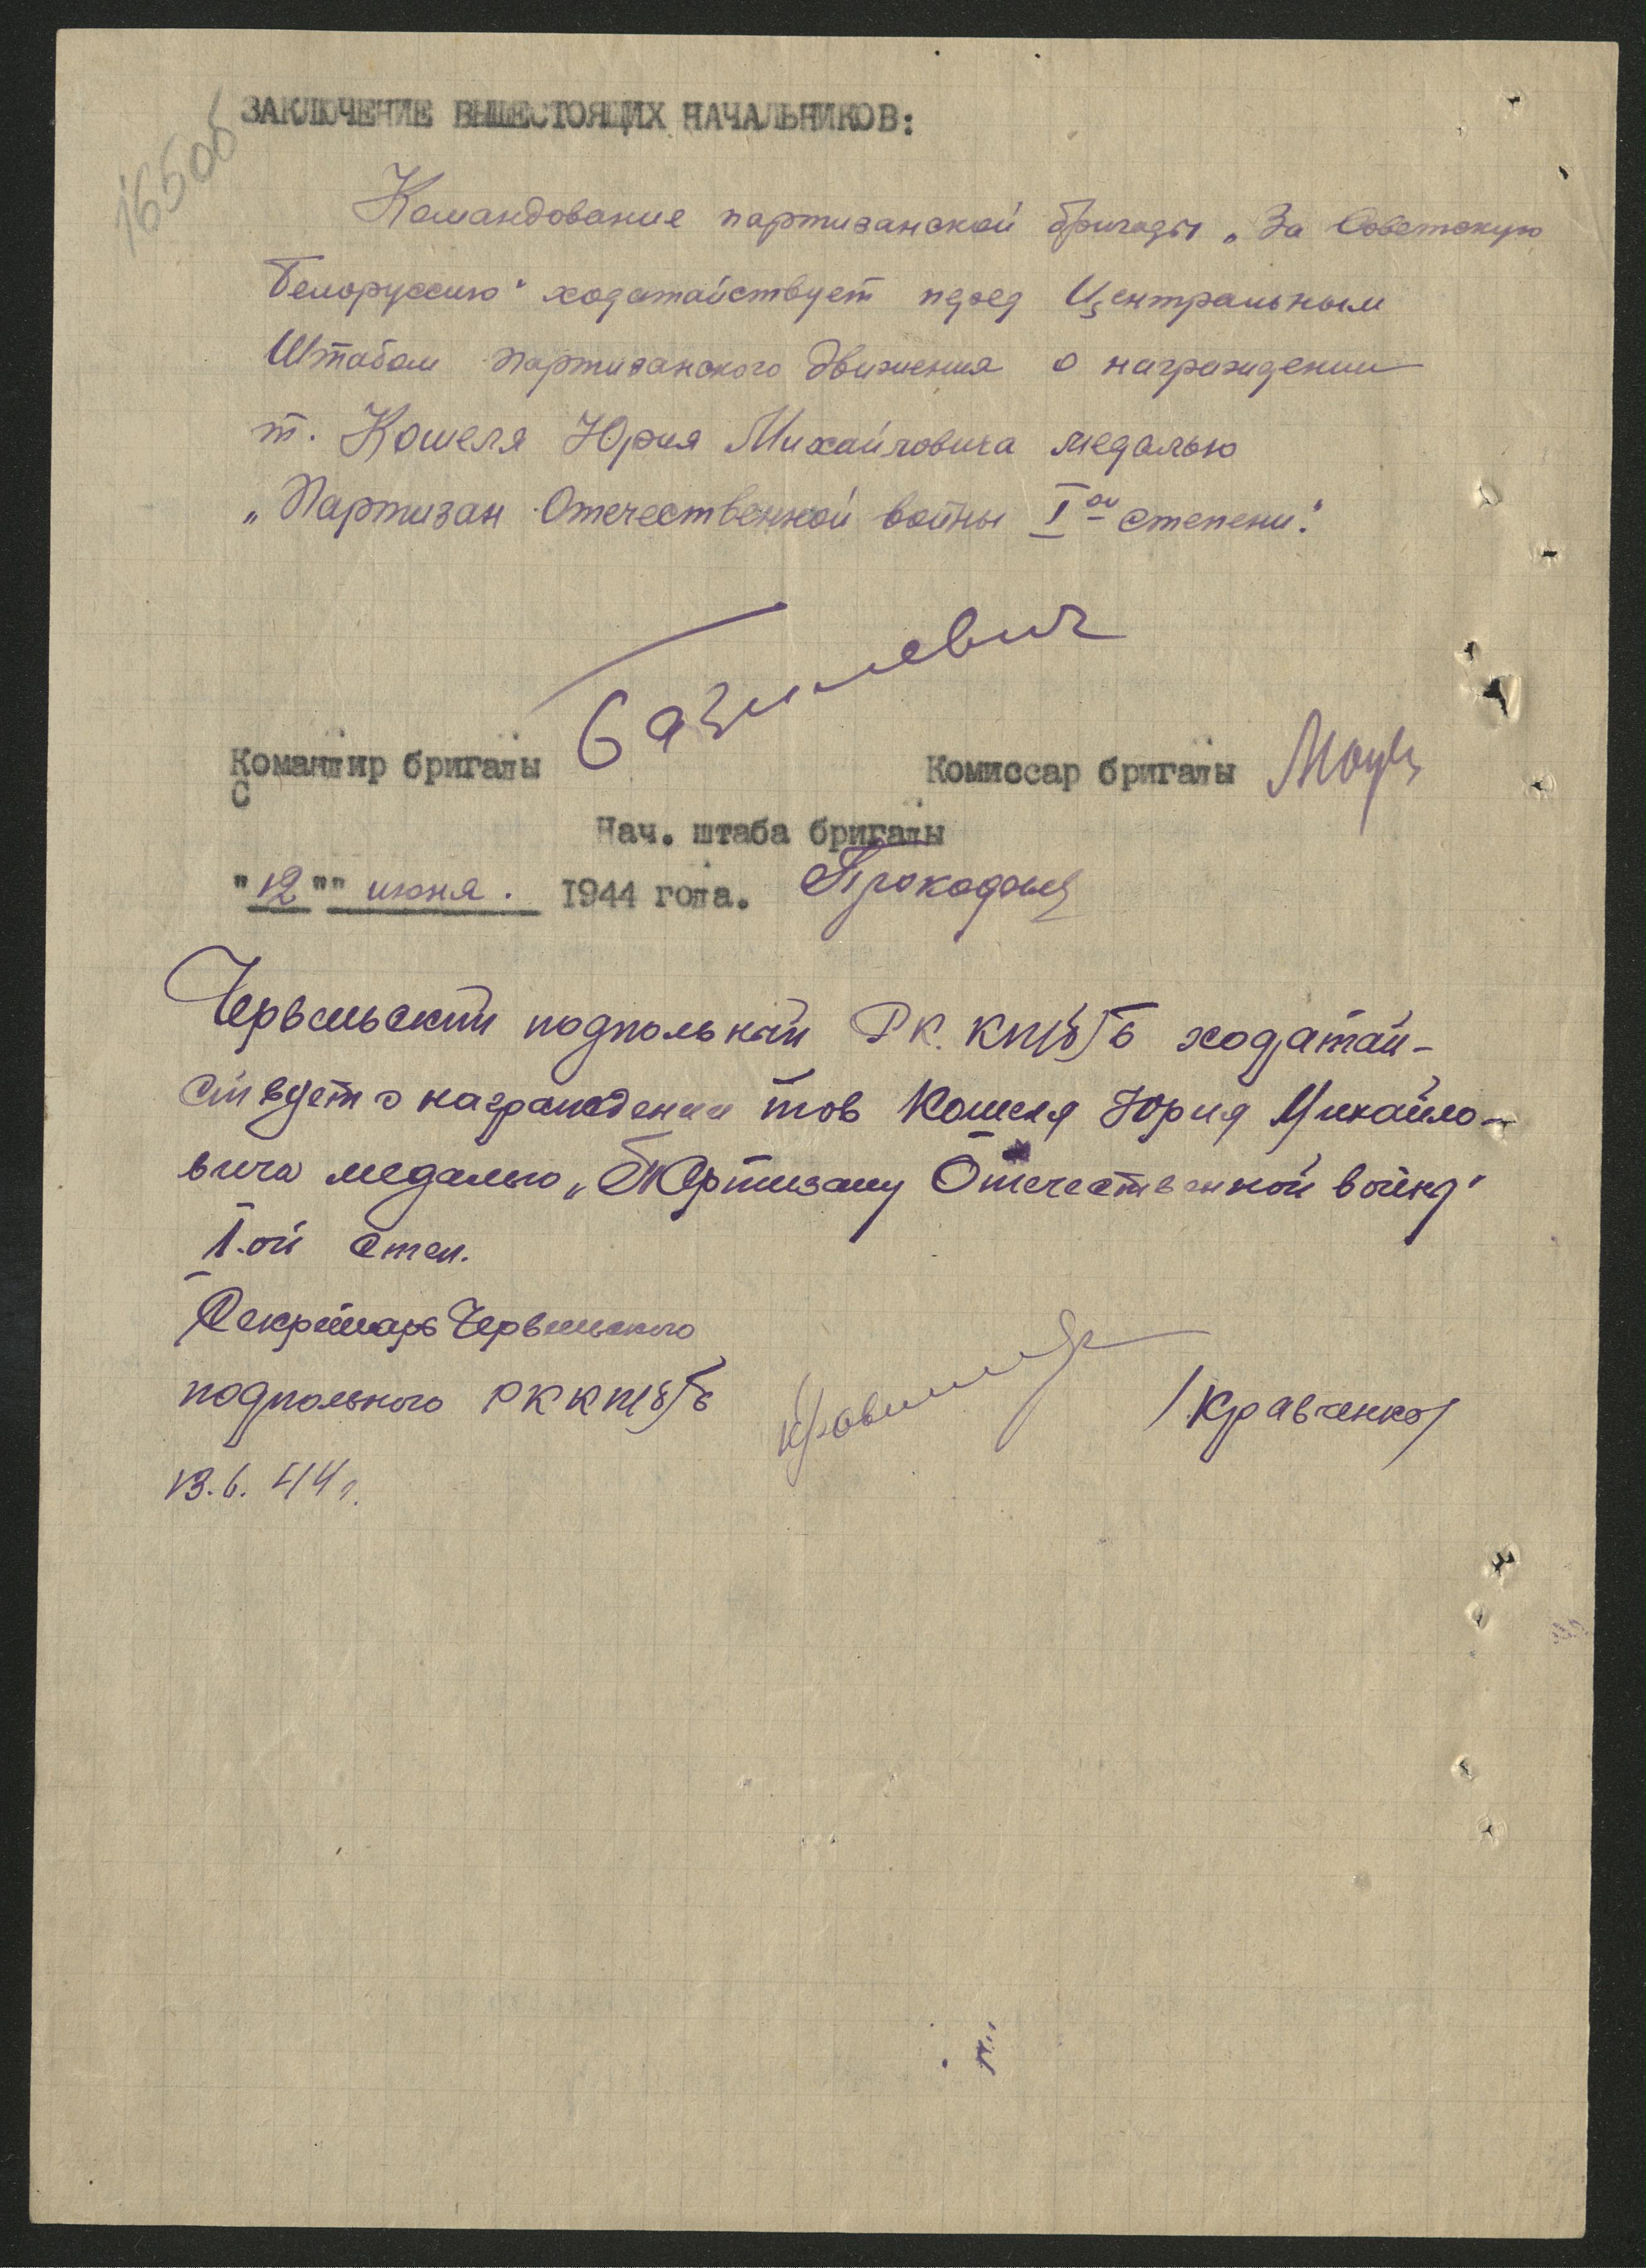 16506
ЗАКЛЮЧЕНИЕ ВЫШЕСТОЯЩИХ НАЧАЛЬНИКОВ:
Командование партизанской бригады „За Советскую
Белоруссию" ходатайствует перед Центральным
Штабом партизанского движения о награждении
т. Кошеля Юрия Михайловича медалью
„Партизан Отечественной войны I ой степени".
Базилевич
Командир бригады Комиссар бригады
С
Нач. штаба бригады
"12"" июня. 1944 года.
Червенский подпольный РК. КП(б)Б ходатай-
ствует о награждении тов Кошеля Юрия Михайло-
вича медалью „Партизану Отечественной войны"
I.ой степ.
Секретарь Червенского
подпольного РК КП(б)Б /Кравченко/
13.6.44 г.